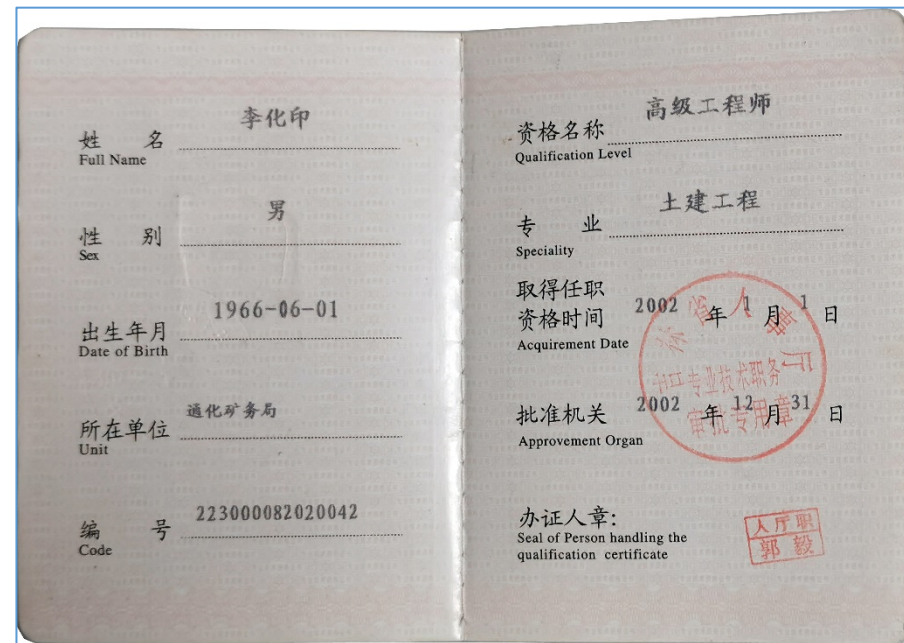 李化印
姓 名
Full Name
男
性 别
Sex
1966-06-01
出生年月
Date of Birth
通化矿务局
所在单位
Unit
223000082020042
编 号
Code
高级工程师
资格名称
Qualification Level
土建工程
专 业
Speciality
取得任职
资格时间 2002 年 1 月 1 日
Acquirement Date
批准机关 2002 年 12 月 31 日
Approvement Organ
林省人事厅
专业技术职务
审批专用章
办证人章:
Seal of Person handling the
qualification certificate
人厅职
郭毅